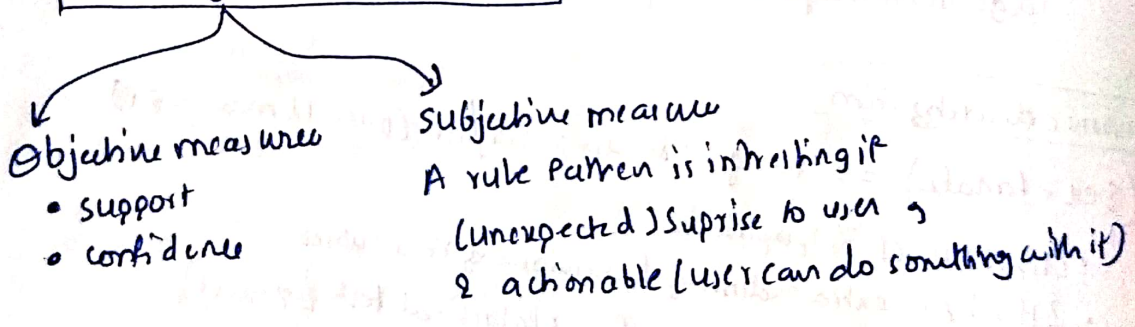 Objective measures
• support
• confidence
Subjective measure
A rule Patten is intresting if
(unexpected) Suprise to user ,
& actionable (user can do something with it)